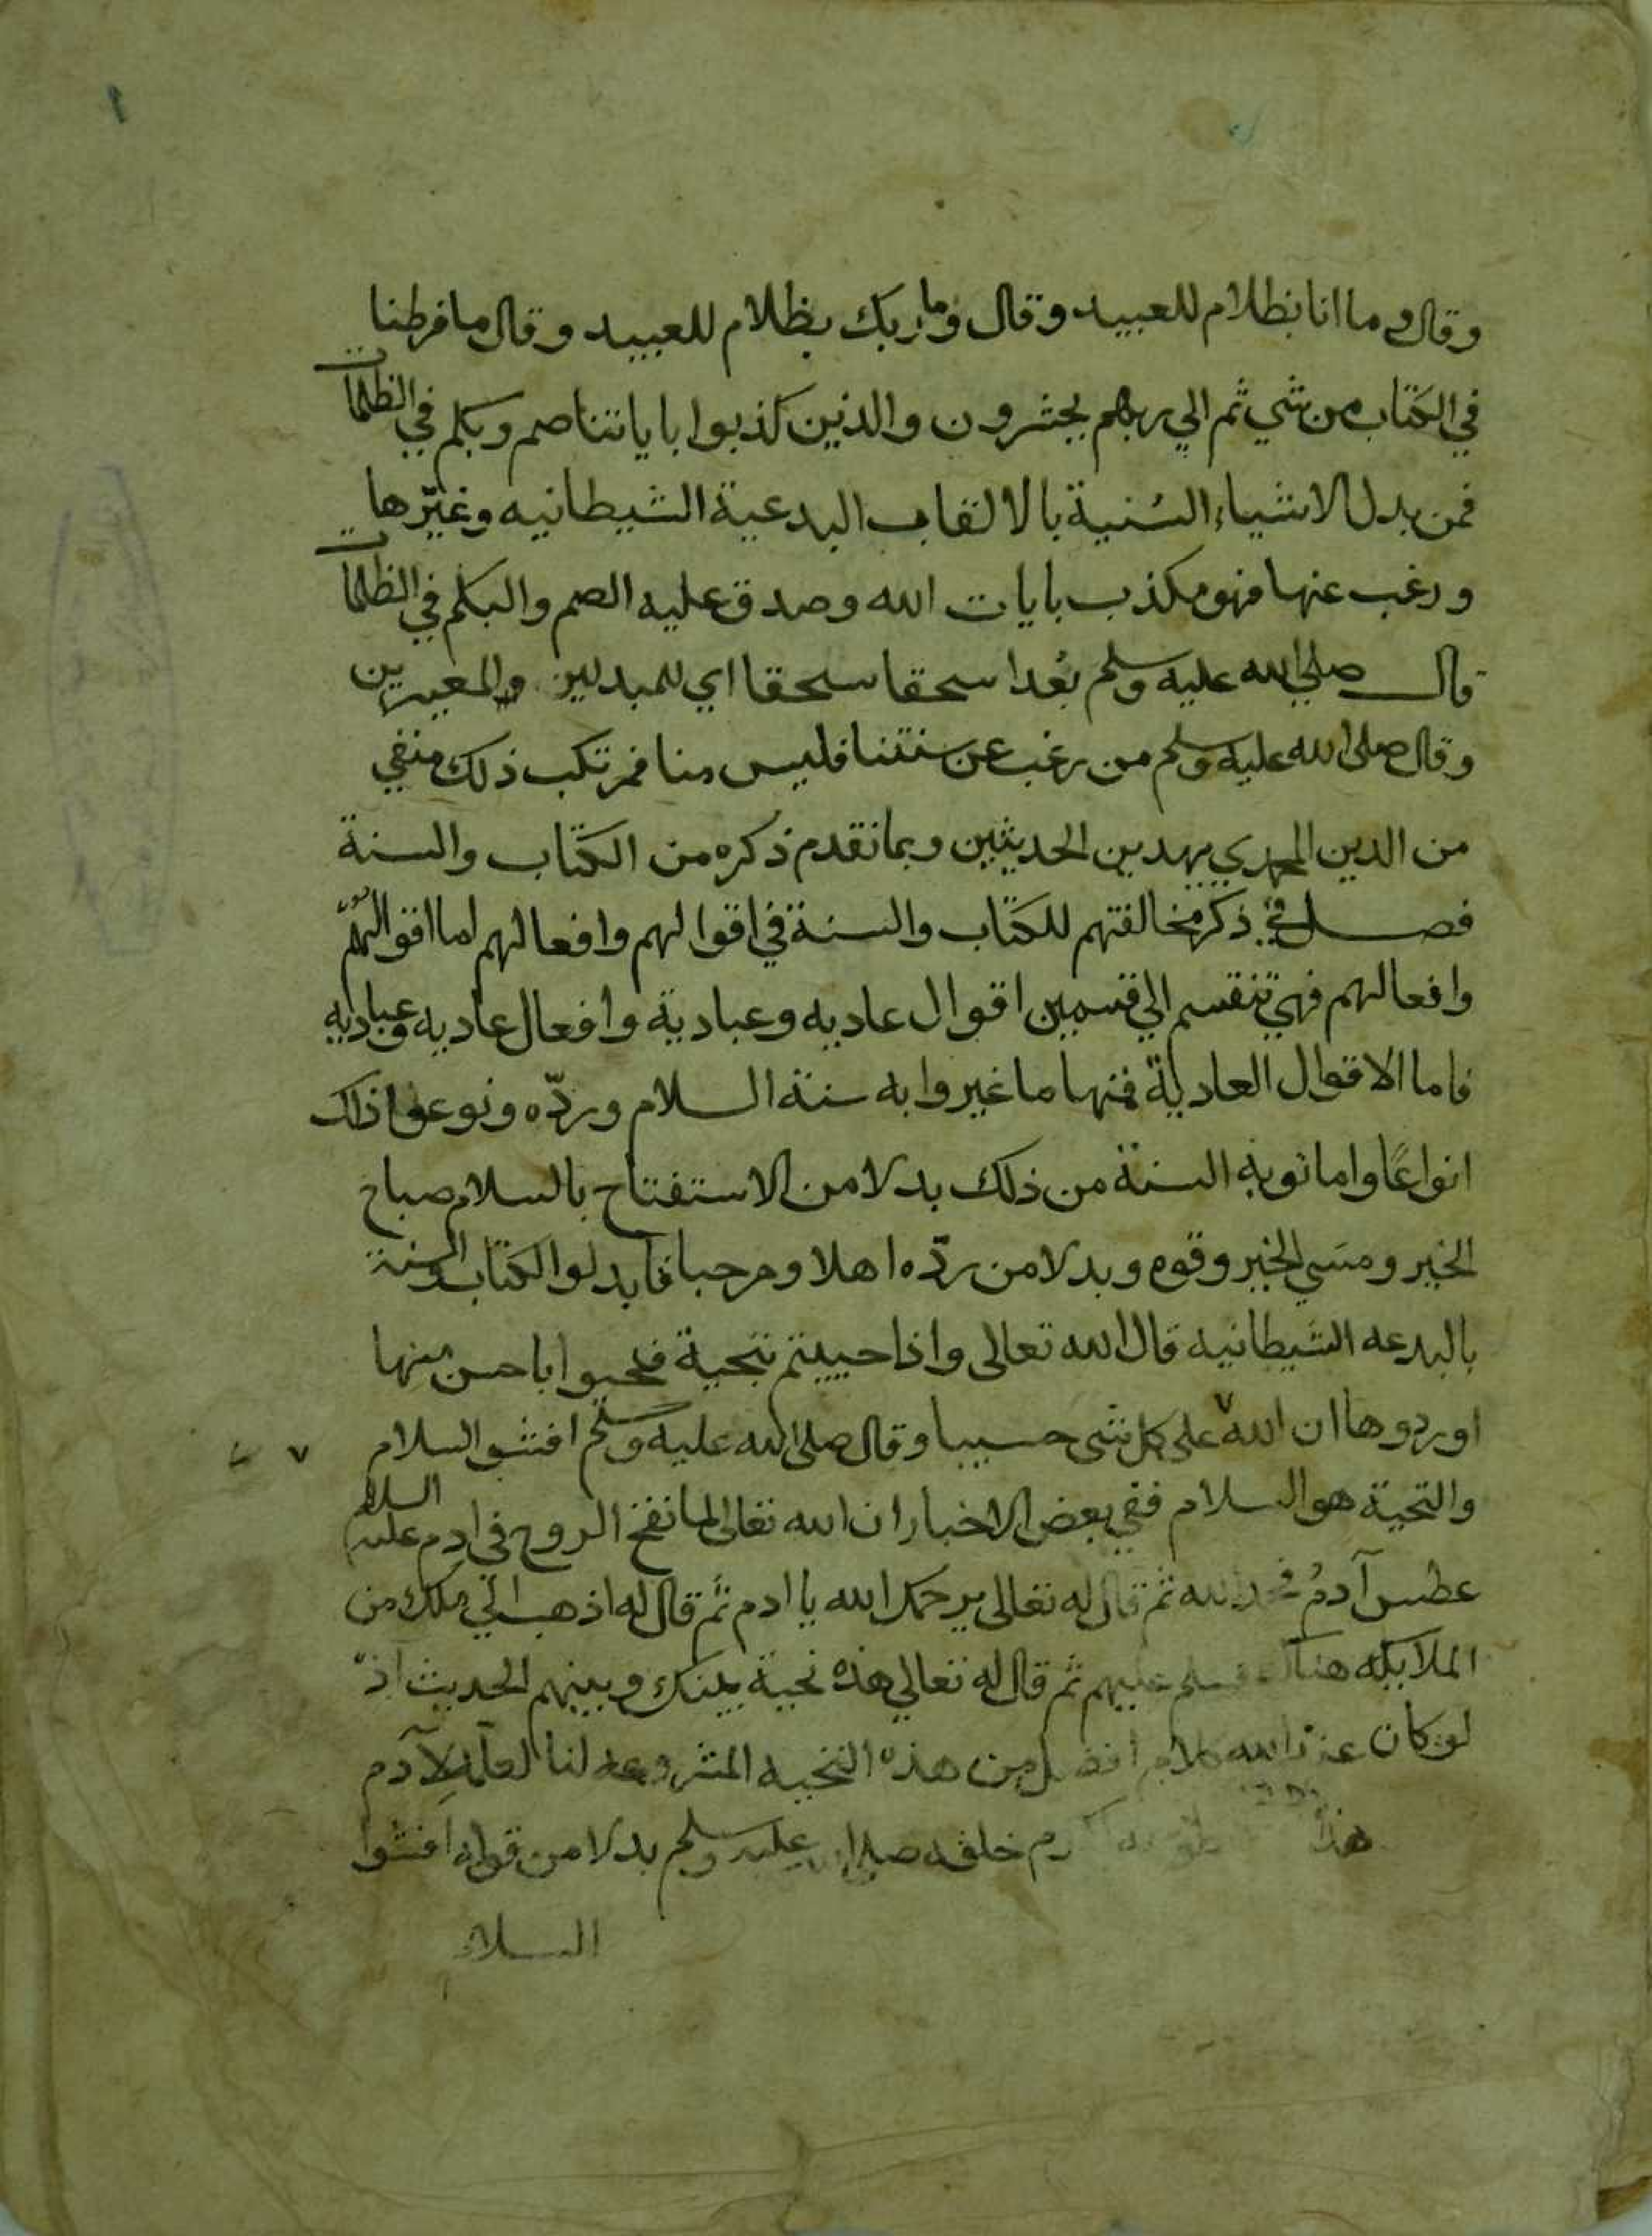 وقال وما انا بظلام للعبيد وقال وما ربك بظلام للعبيد وقال ما فرطنا
في الكتاب من شي ثم الي ربهم يحشرون والذين كذبوا باياتنا صم وبكم في الظلمات
فمن بدل الاشياء السنية بالالقاب البدعية الشيطانيه وغيّرها
ورغب عنها فهو مكذب بايات الله وصدق عليه الصم والبكم في الظلمات
قال صلي الله عليه وسلم بُعدا سحقا سحقا اي للمبدلين والمغيرين
وقال صلى الله عليه وسلم من رغب عن سنتنا فليس منا فمرتكب ذلك منفي
من الدين المحمدي بهدين الحديثين وبما تقدم ذكره من الكتاب والسنة
فصل في ذكر مخالفتهم للكتاب والسنة في اقوالهم وافعالهم اما اقوالهم
وافعالهم فهي تنقسم الي قسمين اقوال عاديه وعبادية وافعال عاديه وعباديه
فاما الاقوال العادية فمنها ما غيروا به سنة السلام وردّه ونوعوا ذلك
انواعًا واماتو به السنة من ذلك بدلا من الاستفتاح بالسلام صباح
الخير ومسي الخير وقوم وبدلا من ردّه اهلا ومرحبا فابدلوا الكتاب والسنة
بالبدعه الشيطانيه قال الله تعالى واذا حييتم بتحية فحيوا باحسن منها
او ردوها ان الله على كل شى حسيبا وقال صلى الله عليه وسلم افشو السلام
والتحية هو السلام ففي بعض الاخبار ان الله تعالى لما نفخ الروح في ادم عليه السلام
عطس آدمُ فحمد الله ثم قال له تعالى يرحمك الله يا ادم ثم قال له اذهب الي ملك من
الملايكه هناك فسلم عليهم ثم قال له تعالي هذه تحية بينك وبينهم الحديث اذ
لو كان عند الله كلام افضل من هذه التحيه المشروعه لنا لعلمه لآدم
هذا خلفه صلى الله عليه وسلم بدلا من قوله افشوا
السلام